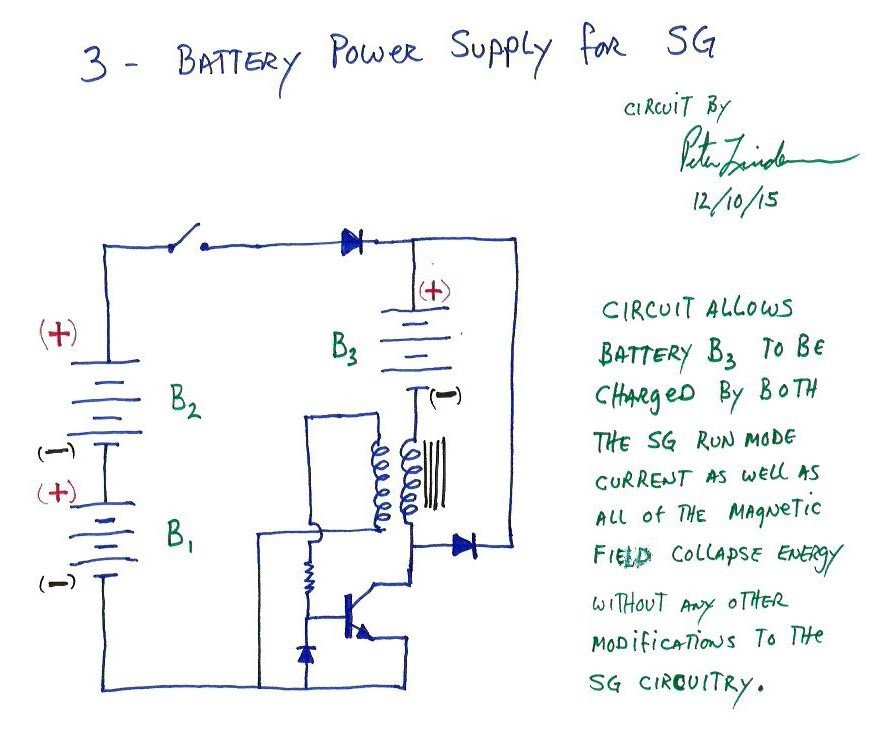 3 - BATTERY POWER SUPPLY for SG
CIRCUIT BY
Peter Lindemann
12/10/15
(+)
(+)
B3
B2
(-)
(-)
(+)
B1
(-)
CIRCUIT ALLOWS
BATTERY B3 TO BE
CHARGED BY BOTH
THE SG RUN MODE
CURRENT AS WELL AS
ALL OF THE MAGNETIC
FIELD COLLAPSE ENERGY
WITHOUT ANY OTHER
MODIFICATIONS TO THE
SG CIRCUITRY.